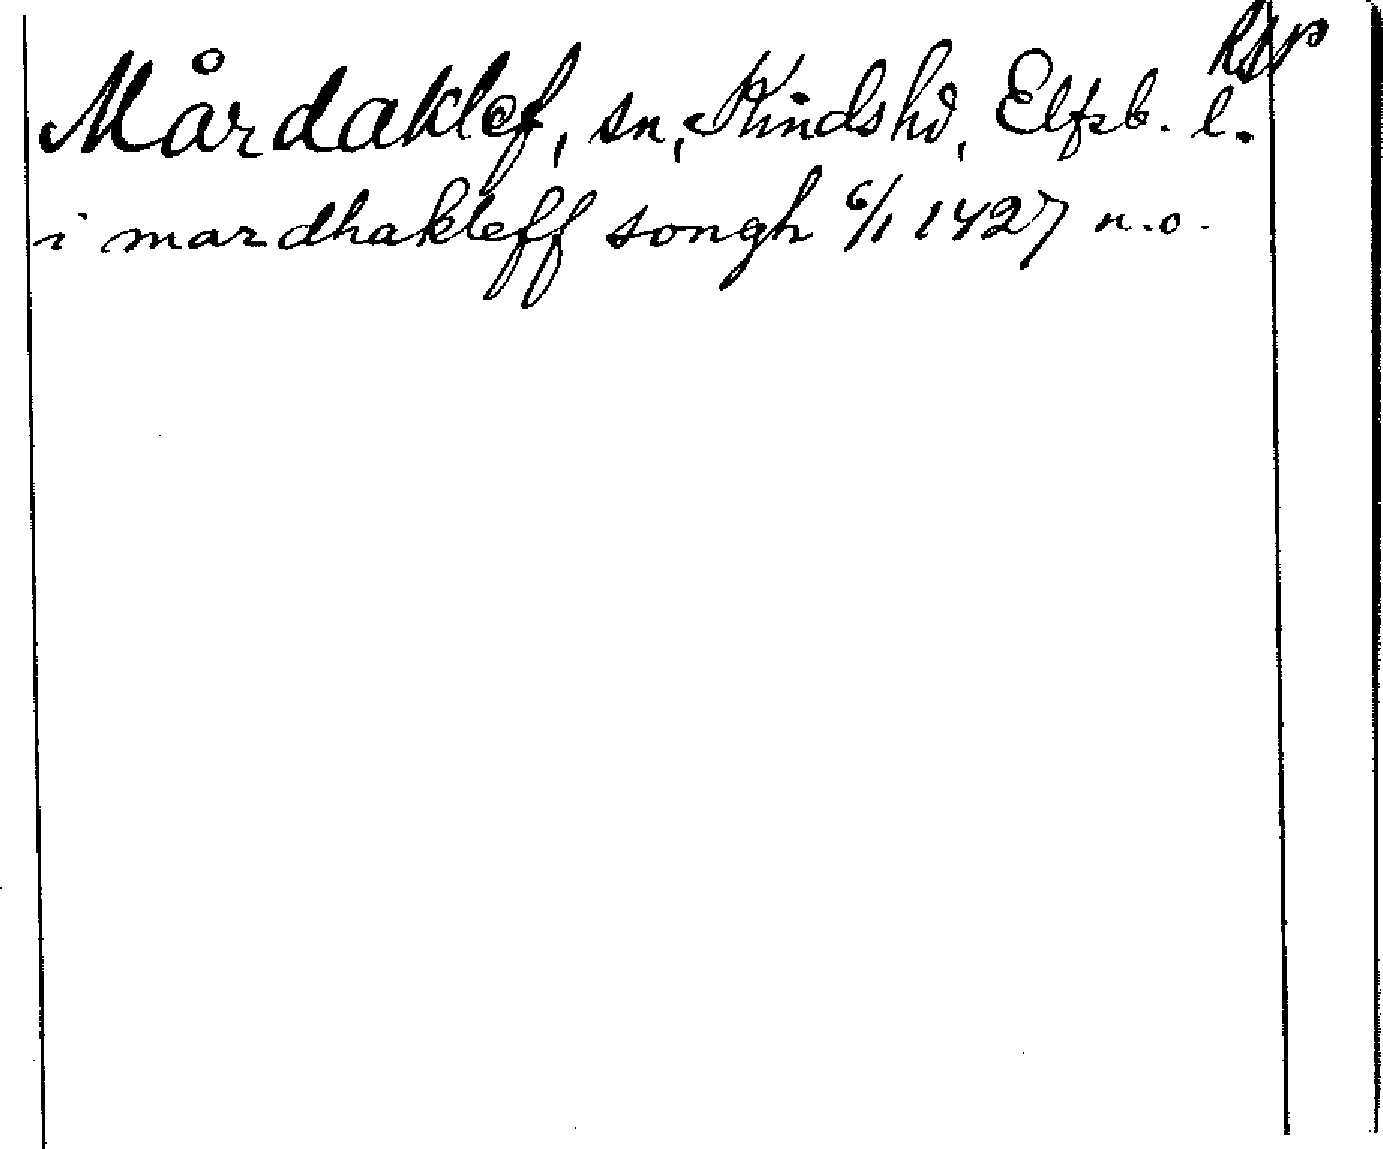 Mårdaklef, sn, Kinds hd, Elfsb. l.
i mardhakleff songh 6/1 1427 n.o.